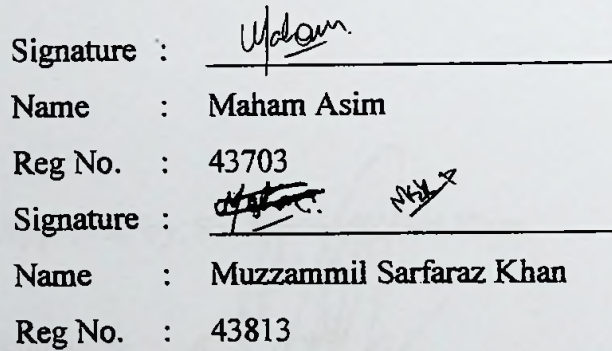 Signature : Maham.
Name : Maham Asim
Reg No. : 43703
Signature : MSK
Name : Muzzammil Sarfaraz Khan
Reg No. : 43813